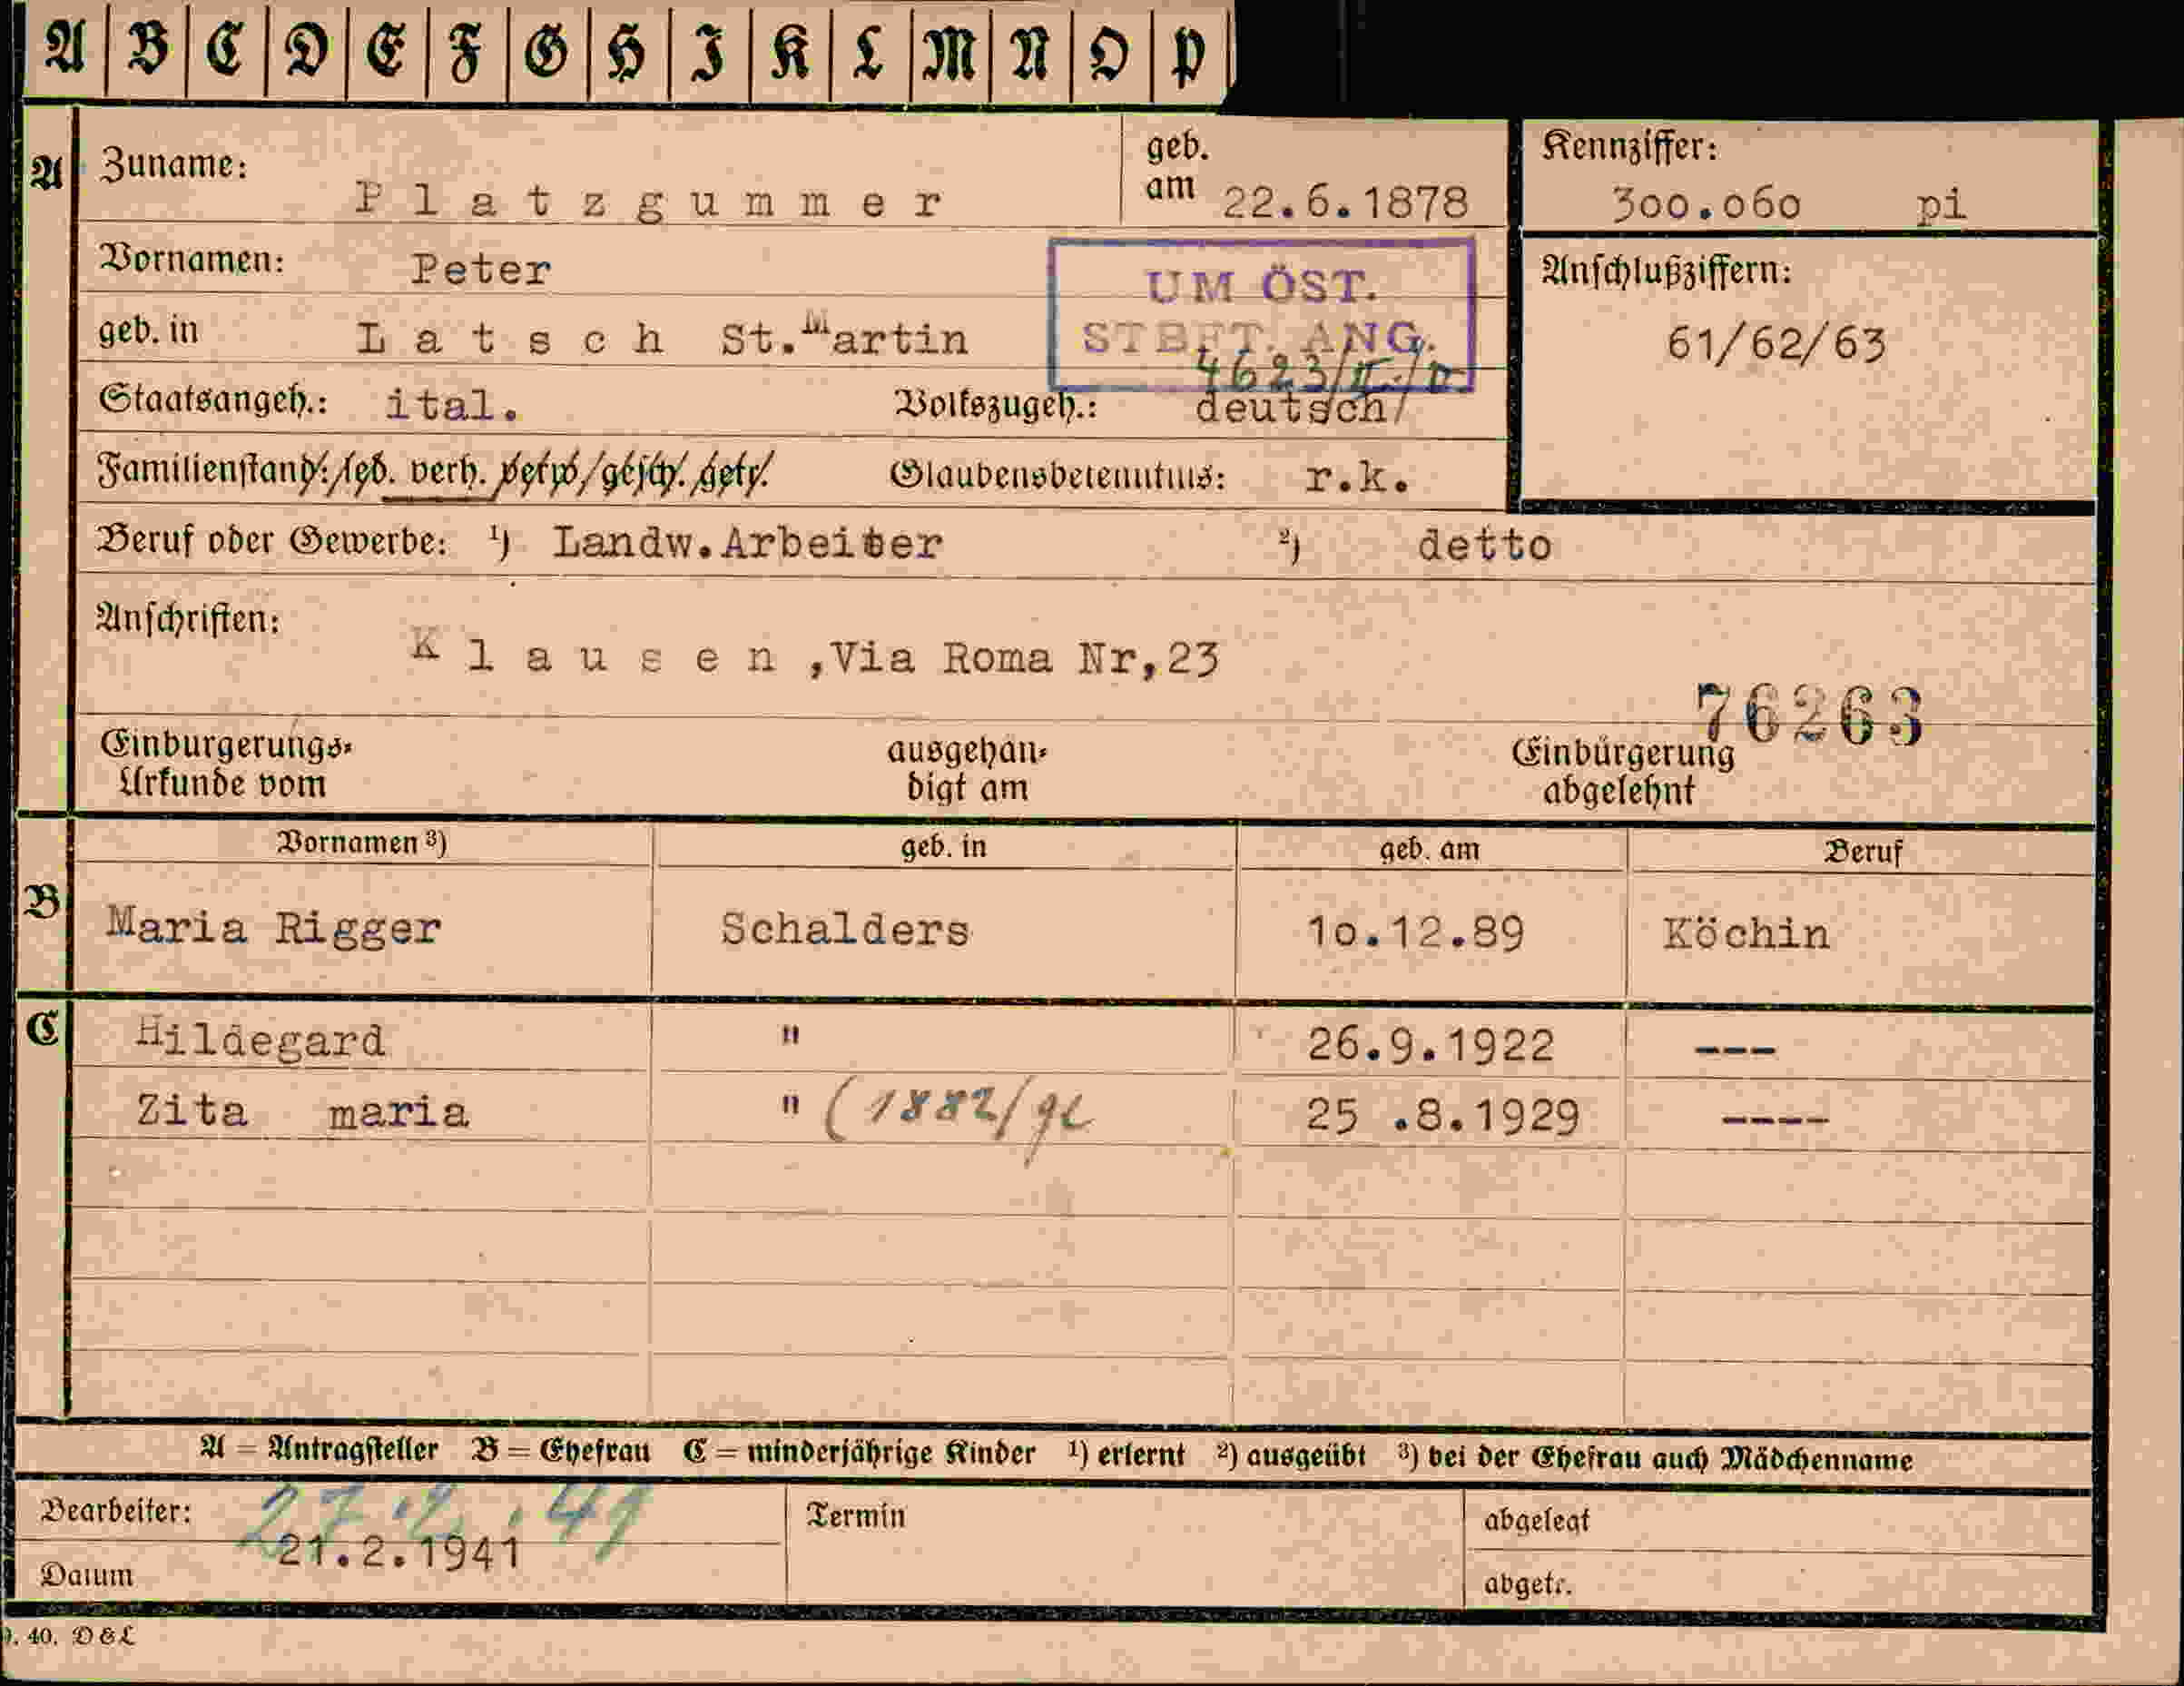 A B C D E F G H I K L M N O P
A Zuname: Platzgummer geb. am 22.6.1878 Kennziffer: 300.060 pi
Vornamen: Peter UM ÖST. Anschlußziffern:
geb. in Latsch St.Martin STBFT. ANG. 61/62/63
4623/II./
Staatsangeh.: ital. Volkszugeh.: deutsch/
Familienstand: led. verh. verw. gesch. getr. Glaubensbekenntnis: r.k.
Beruf oder Gewerbe: ¹) Landw.Arbeiter ²) detto
Anschriften: Klausen,Via Roma Nr,23
76263
Einbürgerungs- ausgehän- Einbürgerung
Urkunde vom digt am abgelehnt
Vornamen ³) geb. in geb. am Beruf
B Maria Rigger Schalders 10.12.89 Köchin
C Hildegard " 26.9.1922 ---
Zita maria " (1882/ge 25 .8.1929 ----
A = Antragsteller B = Ehefrau C = minderjährige Kinder ¹) erlernt ²) ausgeübt ³) bei der Ehefrau auch Mädchenname
Bearbeiter: 27.2.41 Termin abgelegt
Datum 21.2.1941 abgetr.
9. 40. D&L